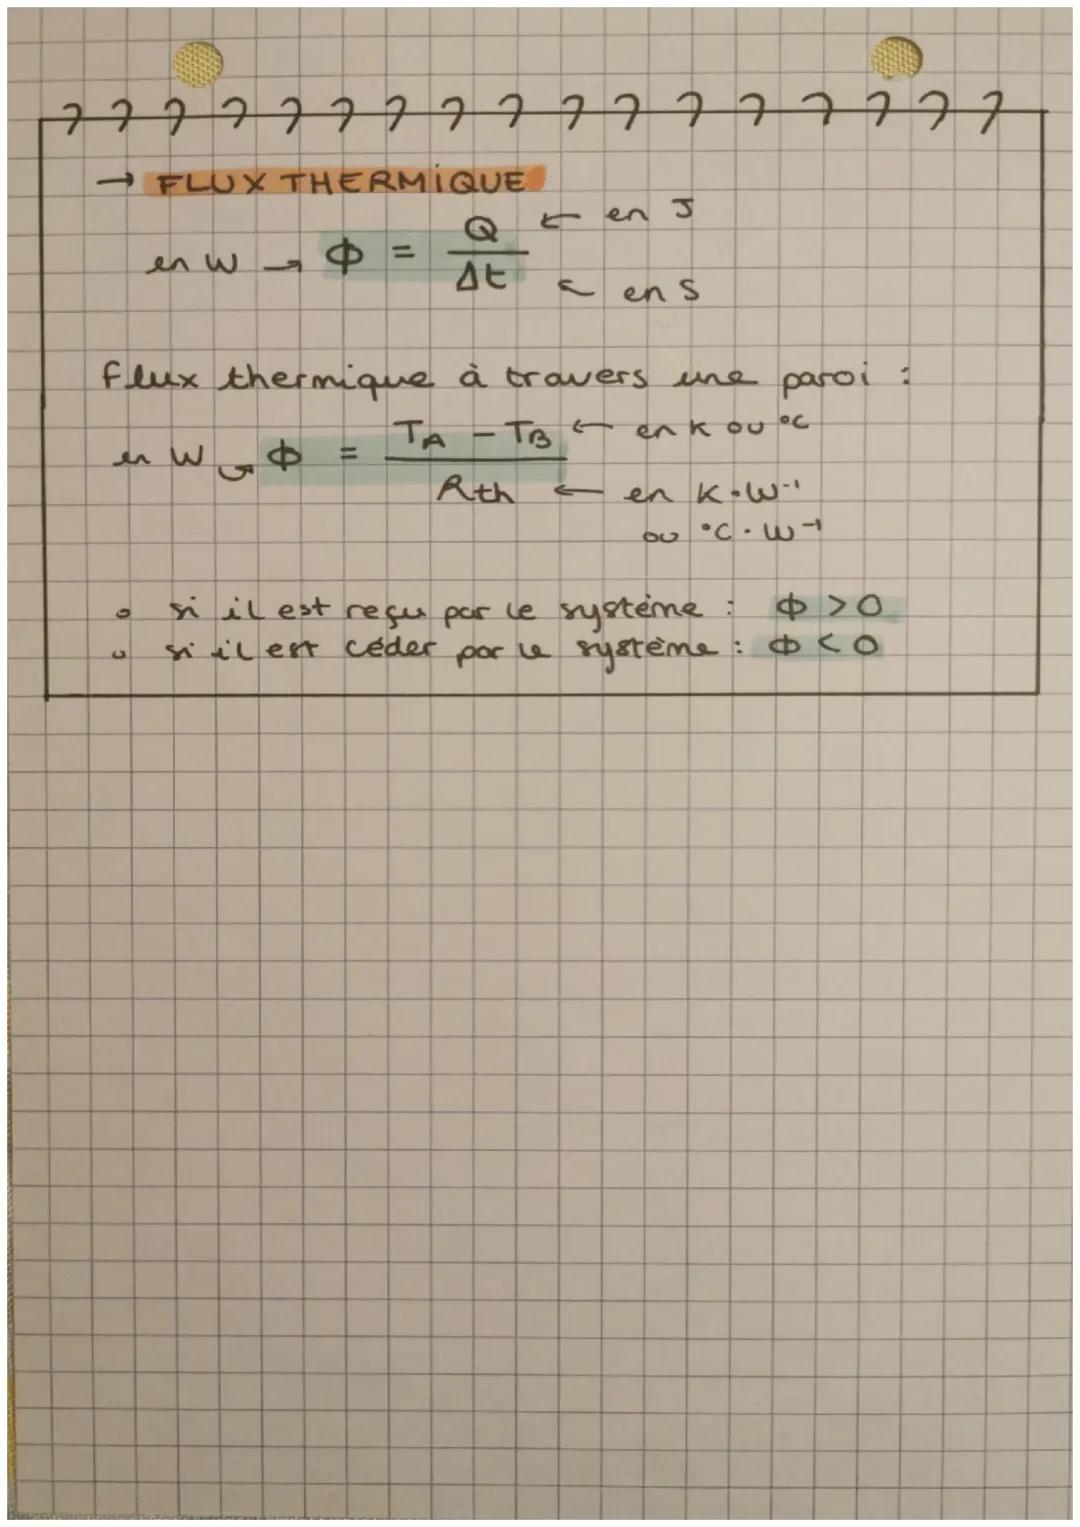 → FLUX THERMIQUE
en W → Φ = Q / Δt ← en J
← en s
flux thermique à travers une paroi :
en W → Φ = TA - TB / Rth ← en K ou °C
← en K·W⁻¹
ou °C·W⁻¹
• si il est reçu par le système : Φ > 0
• si il est céder par le système : Φ < 0